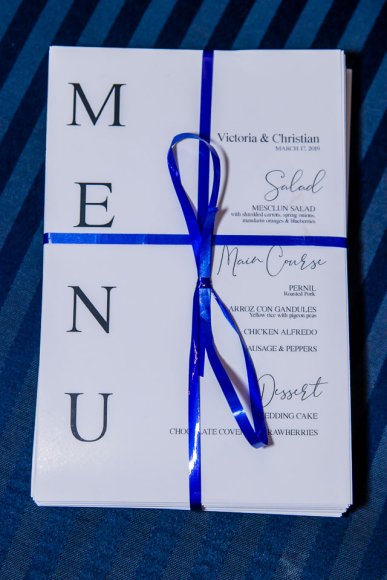 MENU
Victoria & Christian
MARCH 17, 2019
Salad
MESCLUN SALAD
with shredded carrots, spring onions,
mandarin oranges & blueberries.
Main Course
PERNIL
Roasted Pork
ARROZ CON GANDULES
Yellow rice with pigeon peas
CHICKEN ALFREDO
SAUSAGE & PEPPERS
Dessert
WEDDING CAKE
CHOCOLATE COVERED STRAWBERRIES